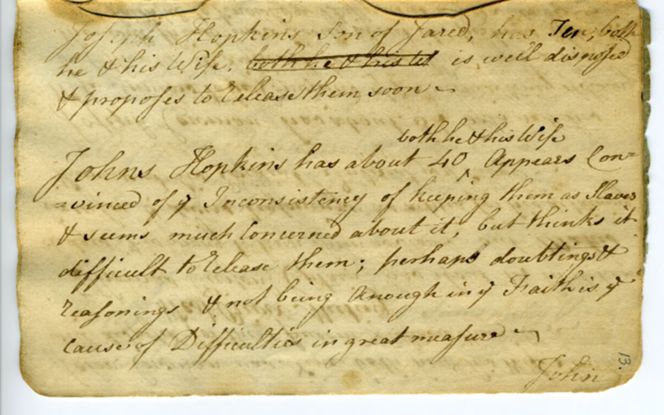 Joseph Hopkins Son of Jared, has Ten; both
he & his Wife, both he & his Wi is well disposed
& proposes to Release them soon ~
both he & his Wife
Johns Hopkins has about 40 ^ Appears Con=
=vinced of ye Inconsistency of keeping them as Slaves
& seems much Concerned about it, but thinks it
difficult to Release them; perhaps doubtings &
Reasonings & not being Anough in ye Faith is ye
cause of Difficulties in great measure ~
John
13.